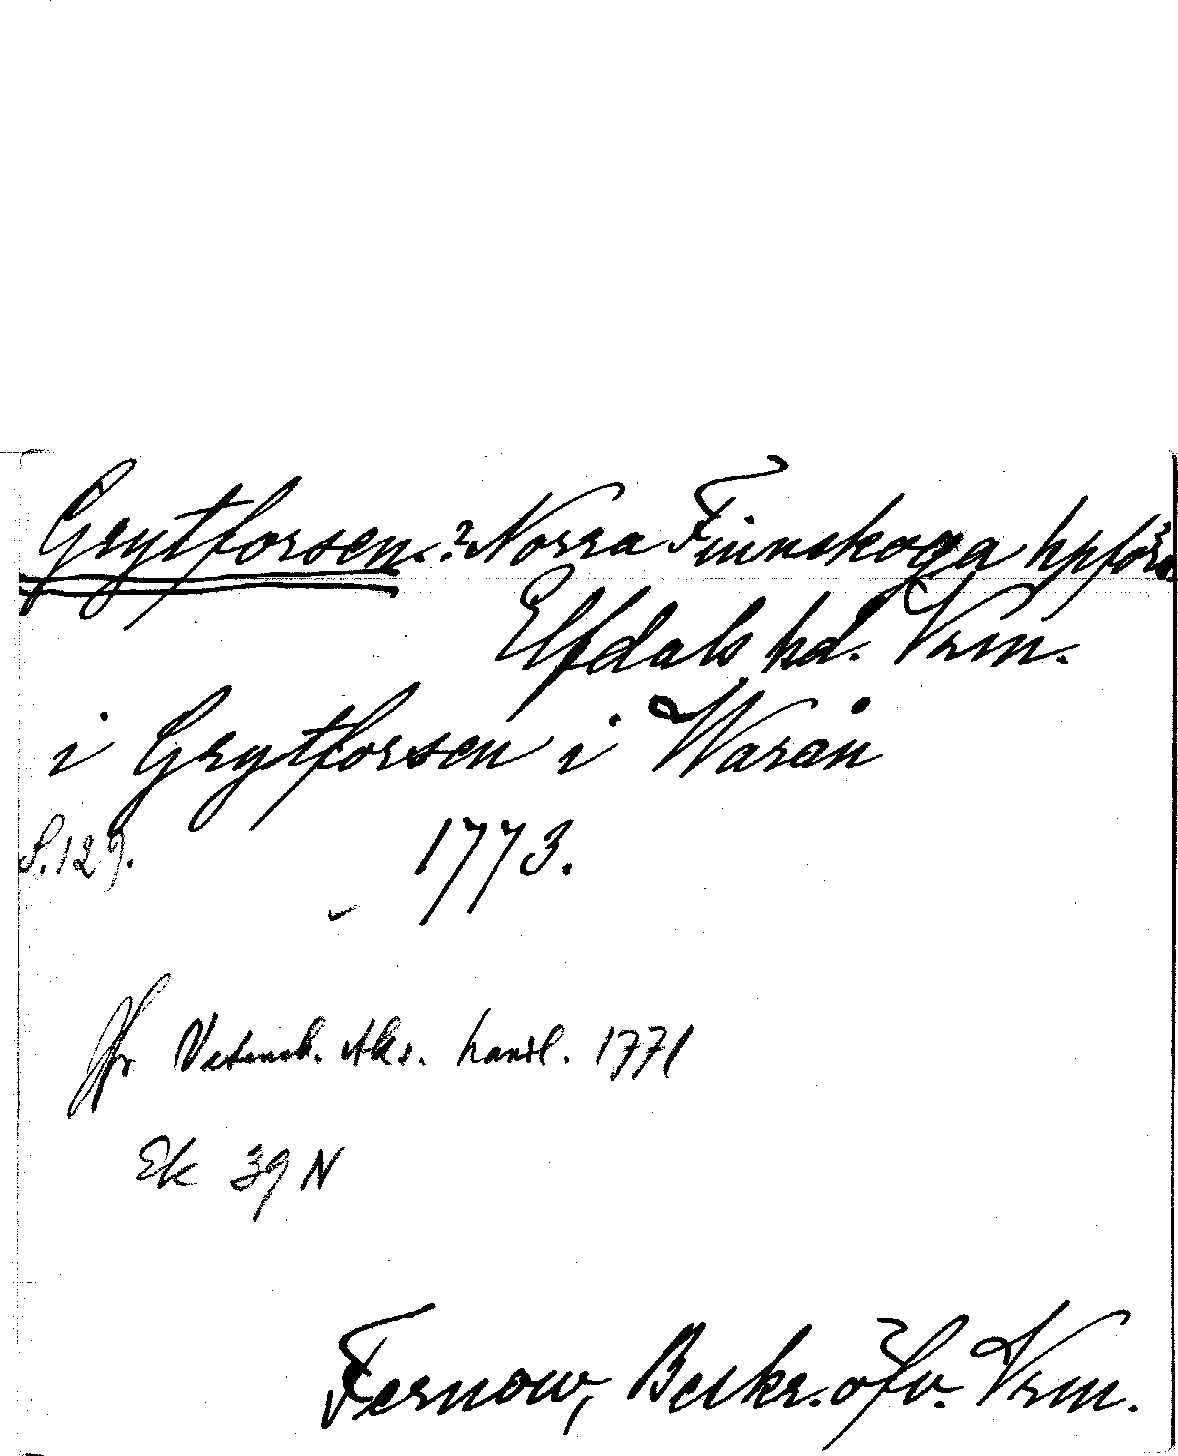 Grytforsen. ? Norra Finnskoga kpförs.
Elfdals hd. Vrm.
i Grytforsen i Warån
S. 129. 1773.
Jfr Vetensk. Aks. handl. 1771
Ek 39 N
Fernow, Beskr. öfv. Vrm.